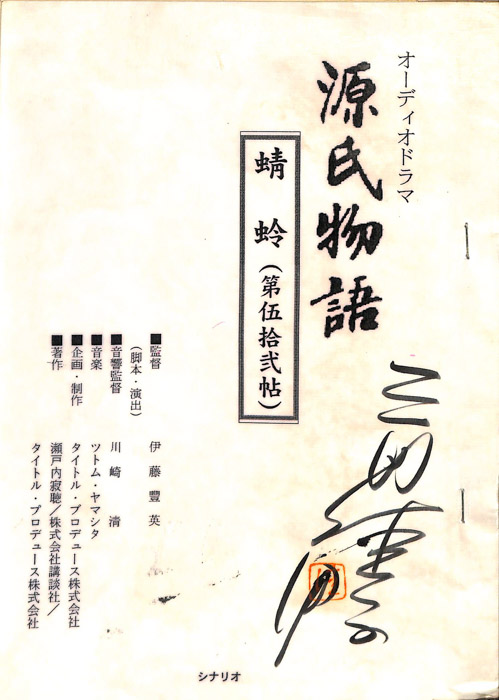 オーディオドラマ
源氏物語
蜻蛉(第伍拾弐帖)
■監督 伊藤豐英
(脚本・演出)
■音響監督 川崎清
■音楽 ツトム・ヤマシタ
■企画・制作 タイトル・プロデュース株式会社
■著作 瀬戸内寂聴/株式会社講談社/
タイトル・プロデュース株式会社
シナリオ